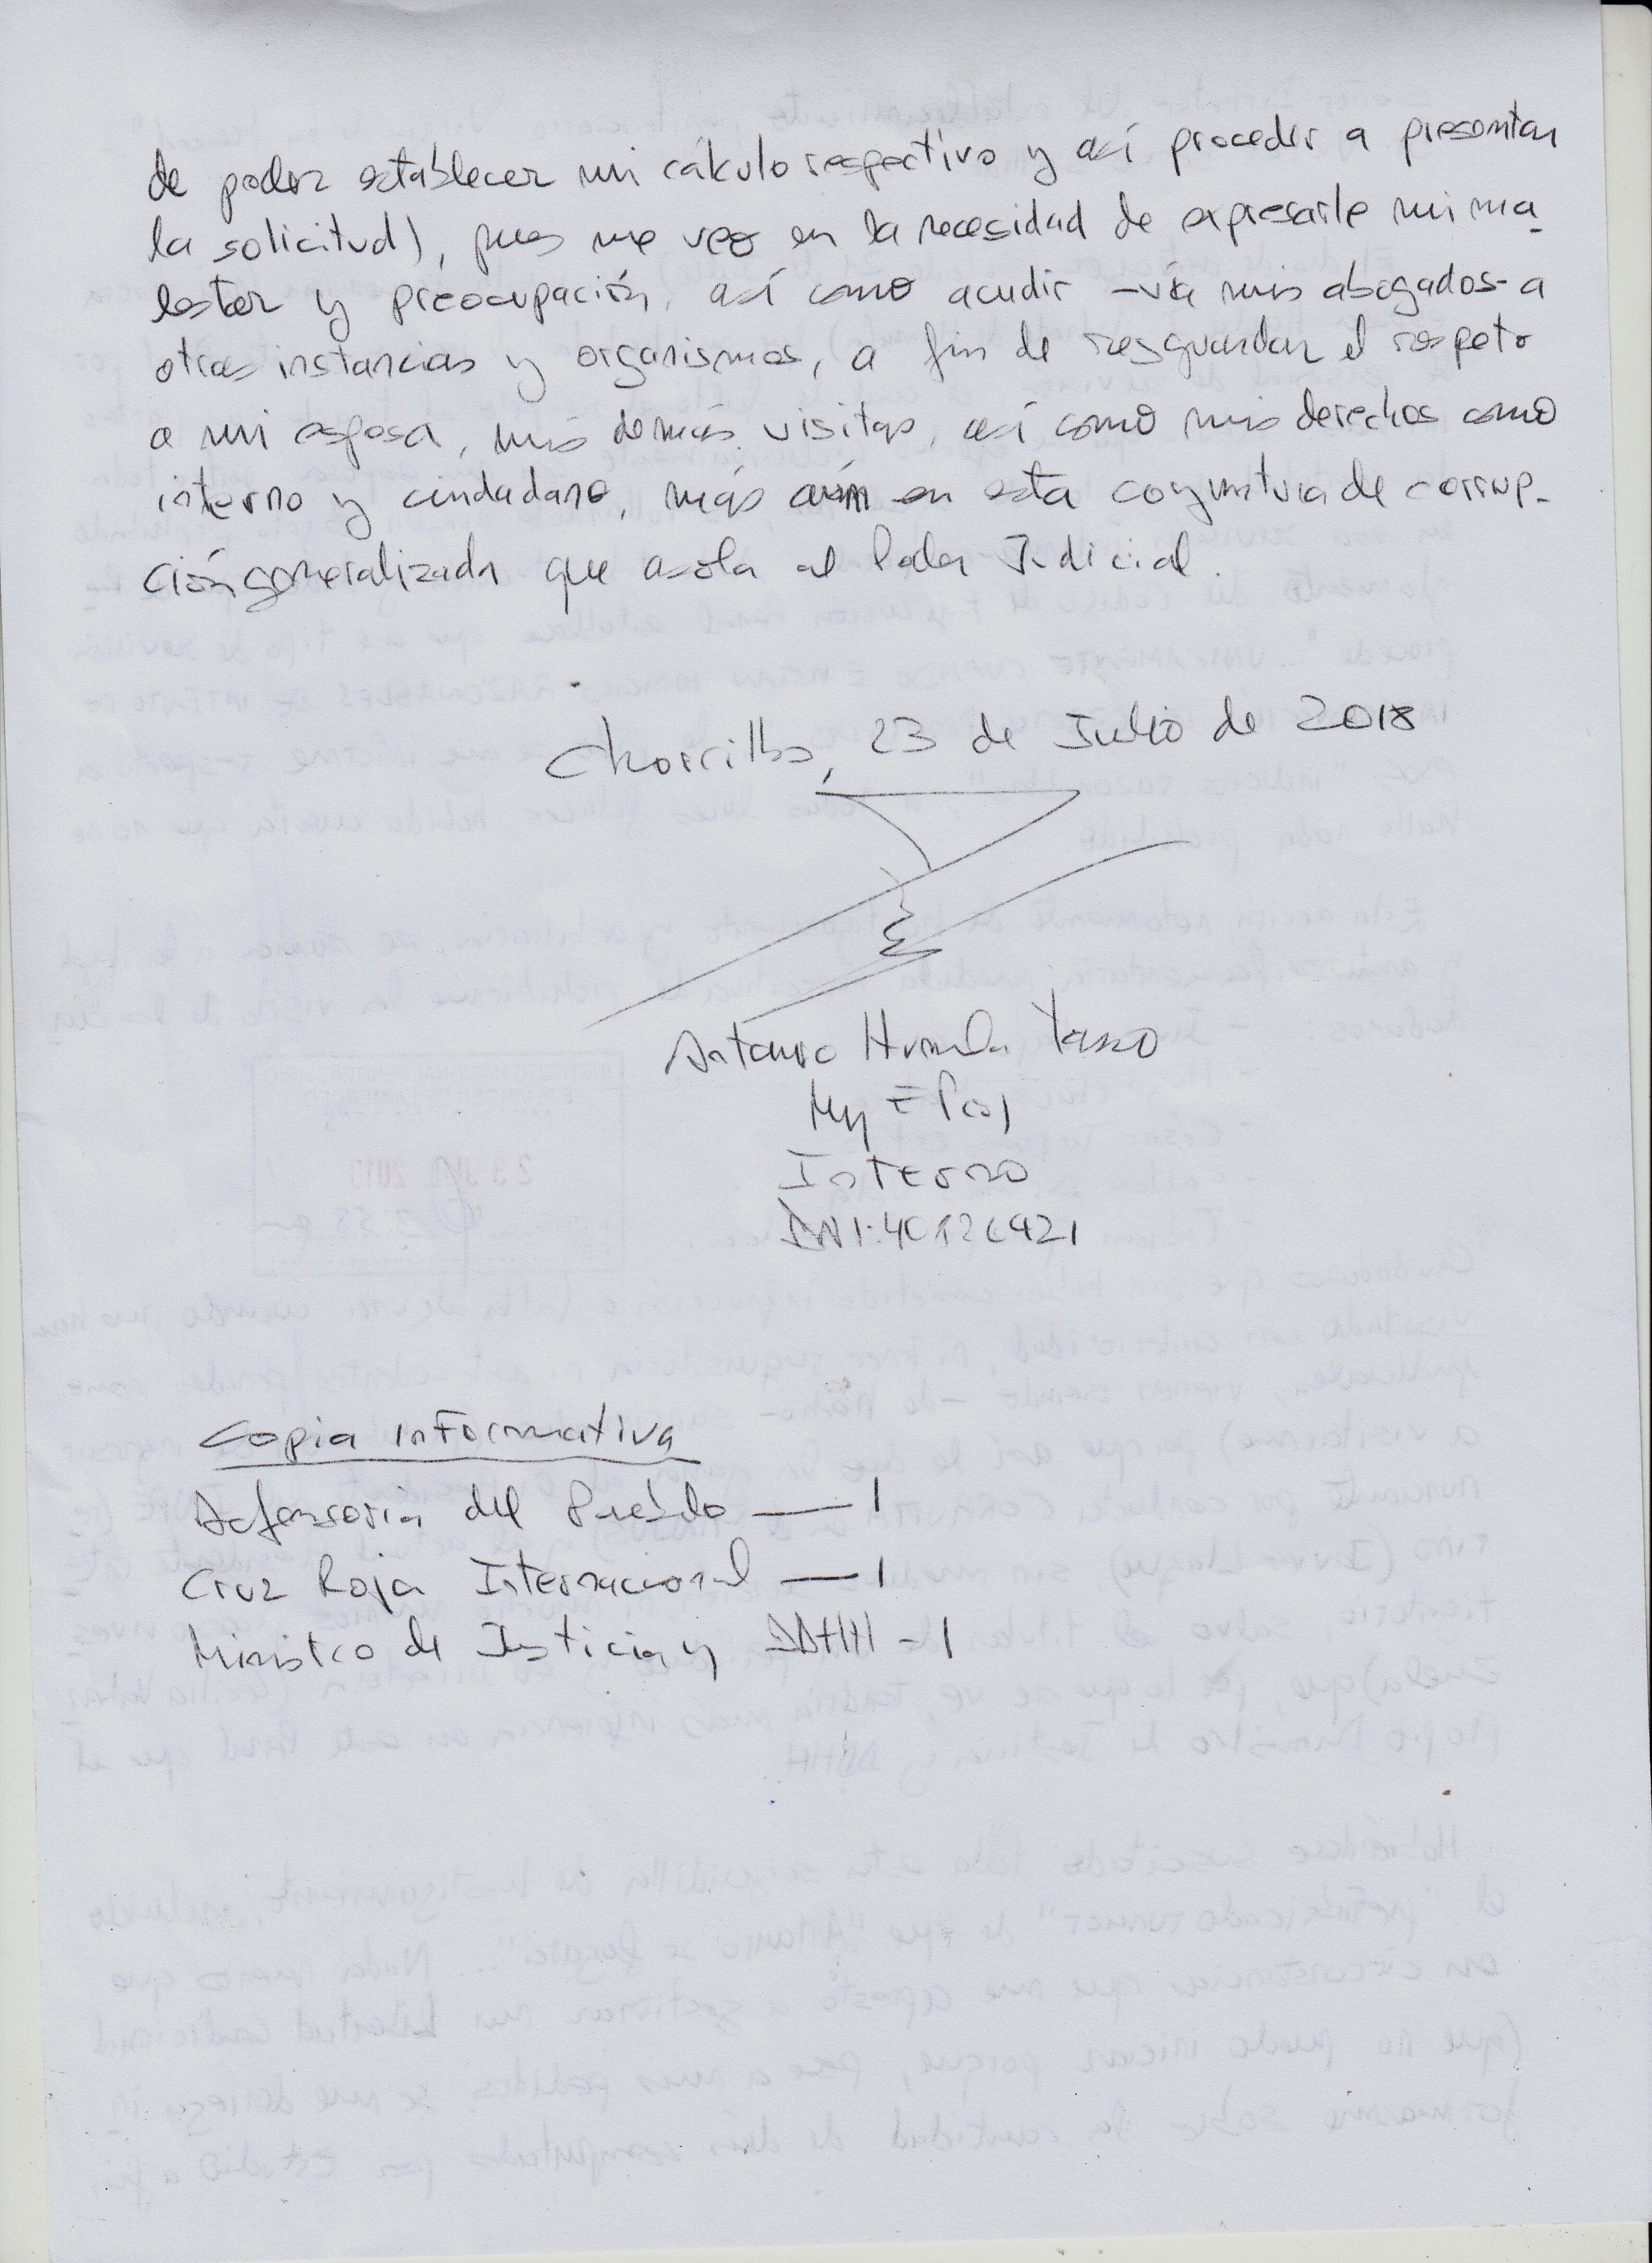 de poder establecer mi cálculo respectivo y así proceder a presentar
la solicitud), pues me veo en la necesidad de expresarle mi ma-
lestar y preocupación, así como acudir -vía mis abogados- a
otras instancias y organismos, a fin de resguardar el respeto
a mi esposa, mis demás visitas, así como mis derechos como
interno y ciudadano, más aún en esta coyuntura de corrup-
ción generalizada que asola al Poder Judicial.
Chorrillos, 23 de Julio de 2018
Antauro Humala Tasso
My EP (r)
Interno
Copia Informativa
Defensoria del Pueblo — 1
Cruz Roja Internacional — 1
Ministro de Justicia y DDHH - 1